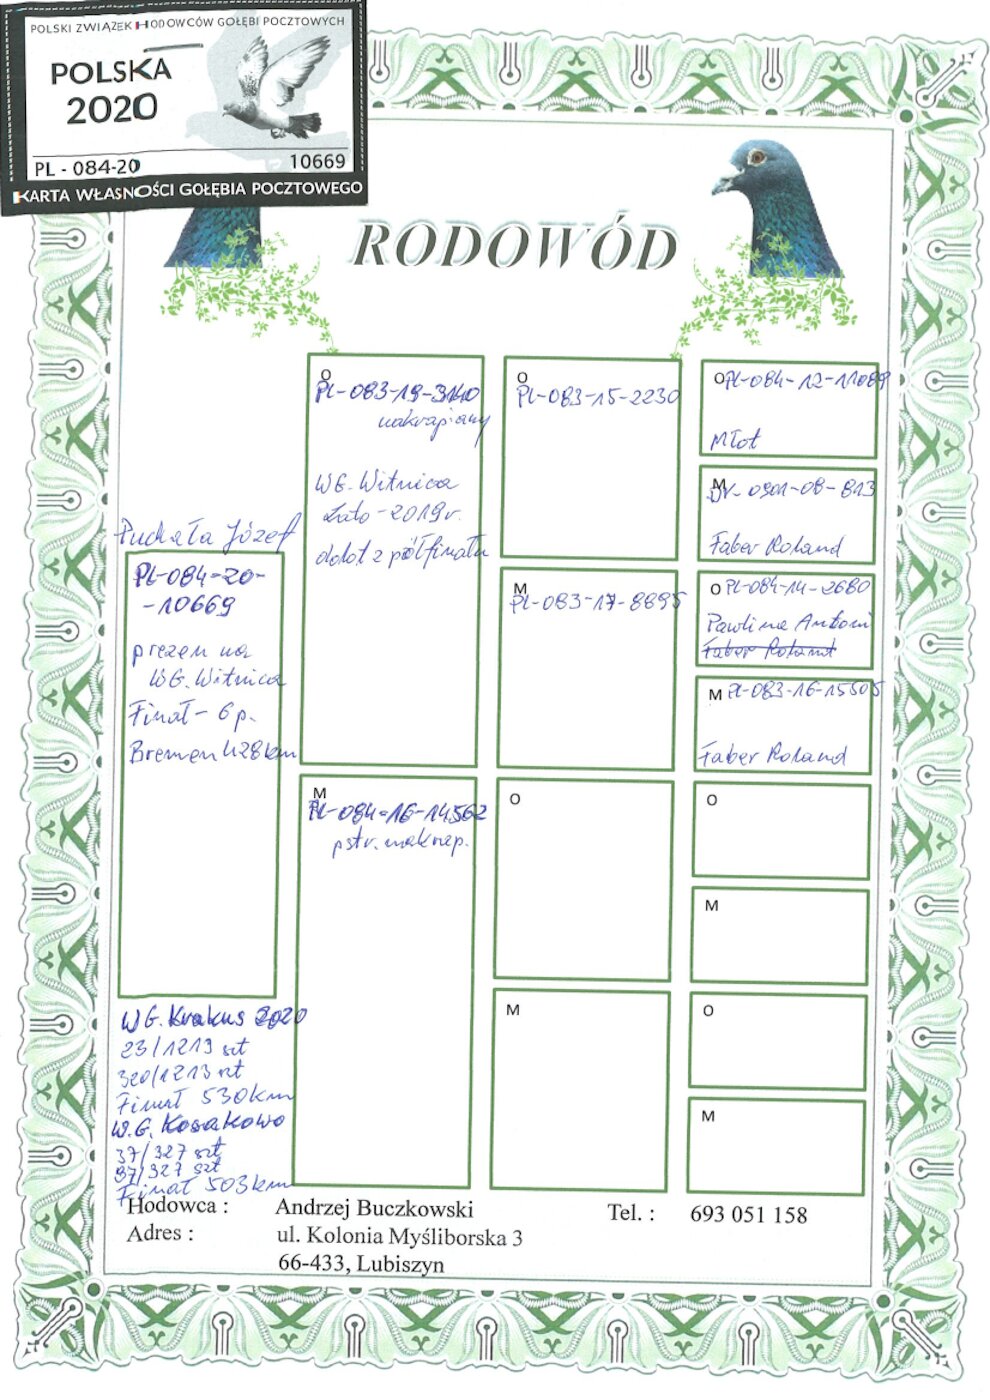 POLSKI ZWIĄZEK HODOWCÓW GOŁĘBI POCZTOWYCH
POLSKA
2020
PL - 084-20 10669
KARTA WŁASNOŚCI GOŁĘBIA POCZTOWEGO
RODOWÓD
Puchała Józef
PL-084-20-
-10669
prezen na
WG. Witnica
Finał - 6 p.
Bremen 428km
WG. Krakus 2020
23/1213 szt
320/1213 szt
Finał 530km
W.G. Kosakowo
37/327 szt
97/327 szt
Finał 503km
O
PL-083-19-3140
nakrapiany
WG. Witnica
Lato - 2019r.
dolot z półfinału
M
PL-084-16-14562
pstr. naknap.
O
PL-083-15-2230
M
PL-083-17-8895
O
M
O PL-084-12-11089
Młot
M
DV-0901-08-813
Faber Roland
O PL-084-14-2680
Pawlina Antoni
Faber Roland
M PL-083-16-15505
Faber Roland
O
M
O
M
Hodowca : Andrzej Buczkowski Tel. : 693 051 158
Adres : ul. Kolonia Myśliborska 3
66-433, Lubiszyn